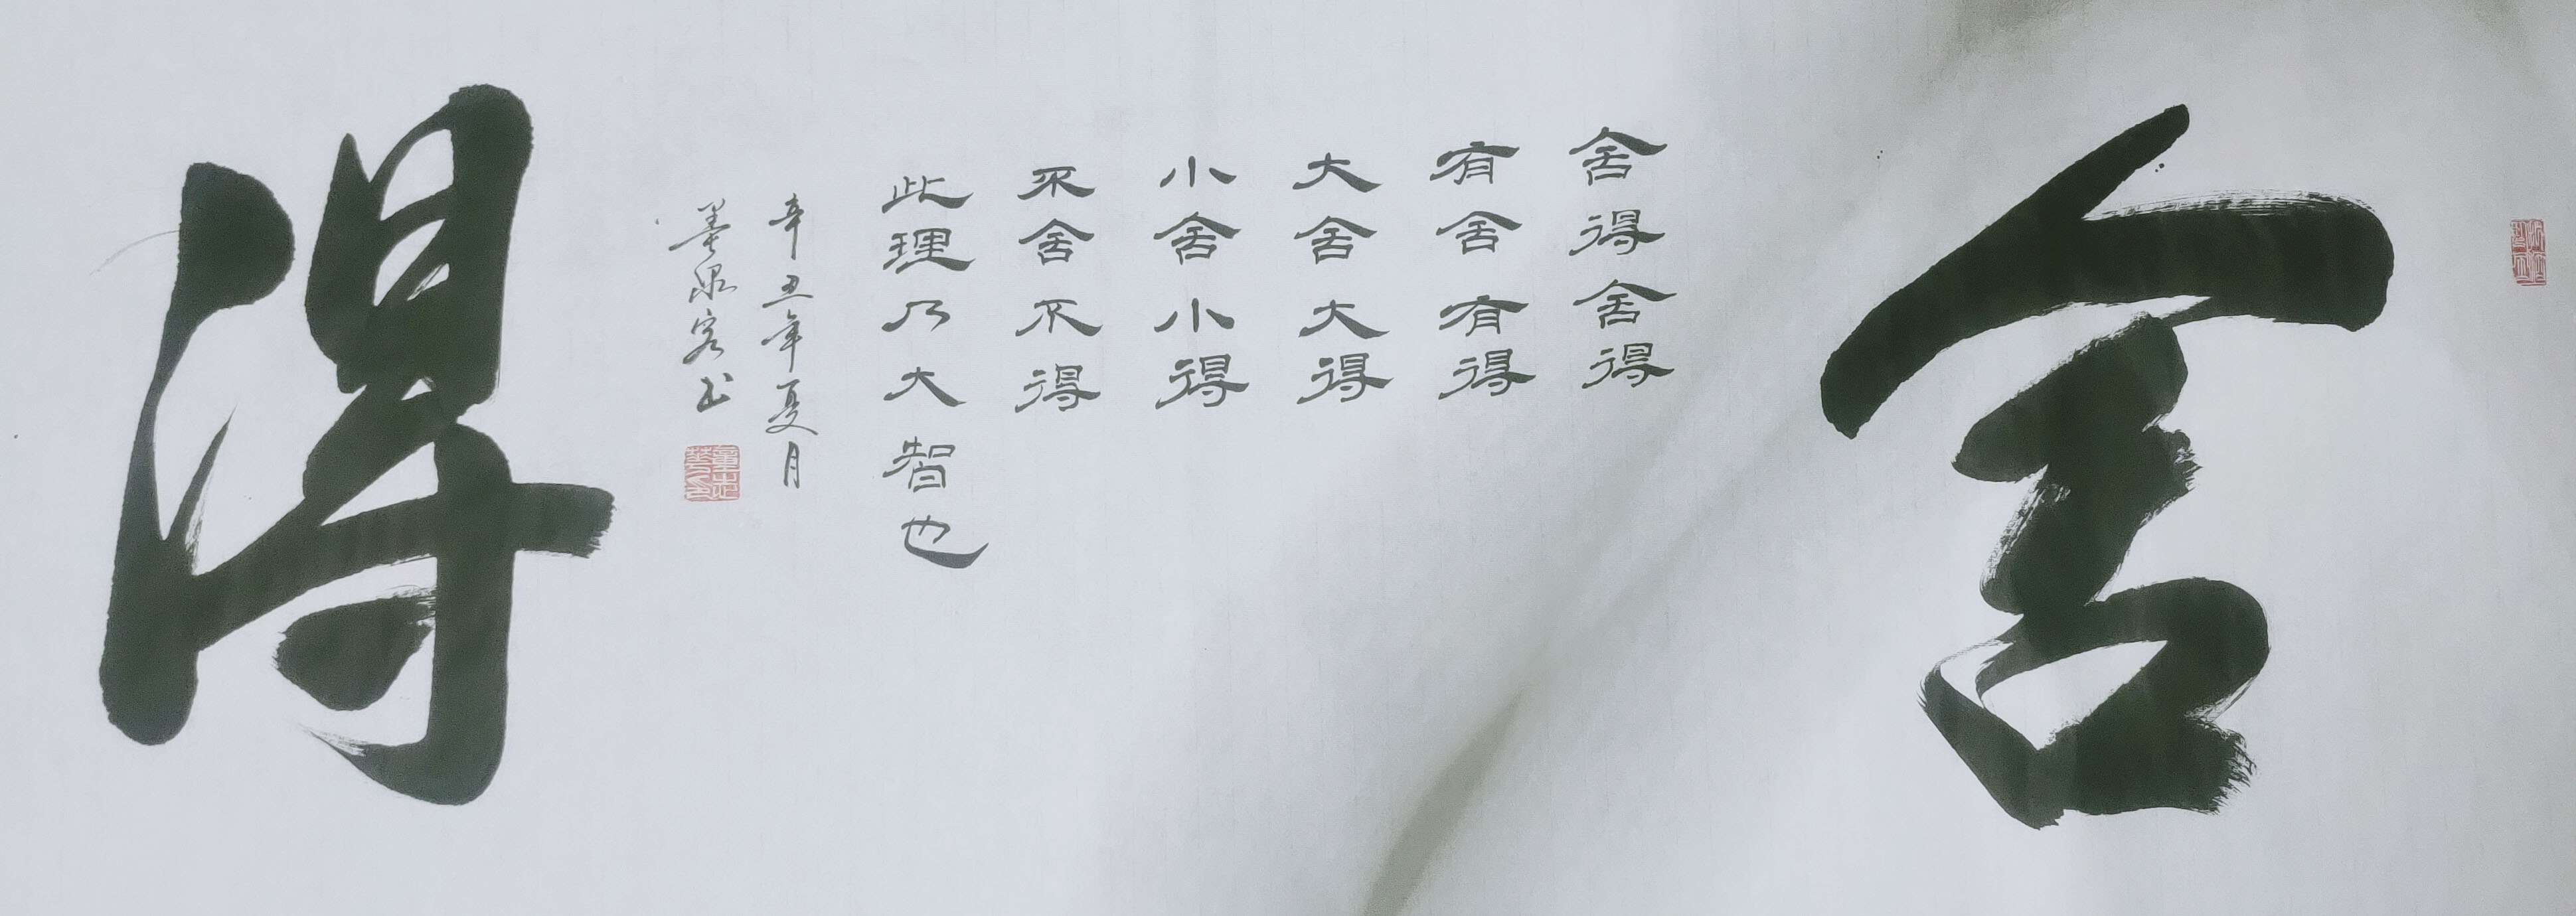 舍
舍得舍得
有舍有得
大舍大得
小舍小得
不舍不得
此理乃大智也
辛丑年夏月
墨泉客书
得